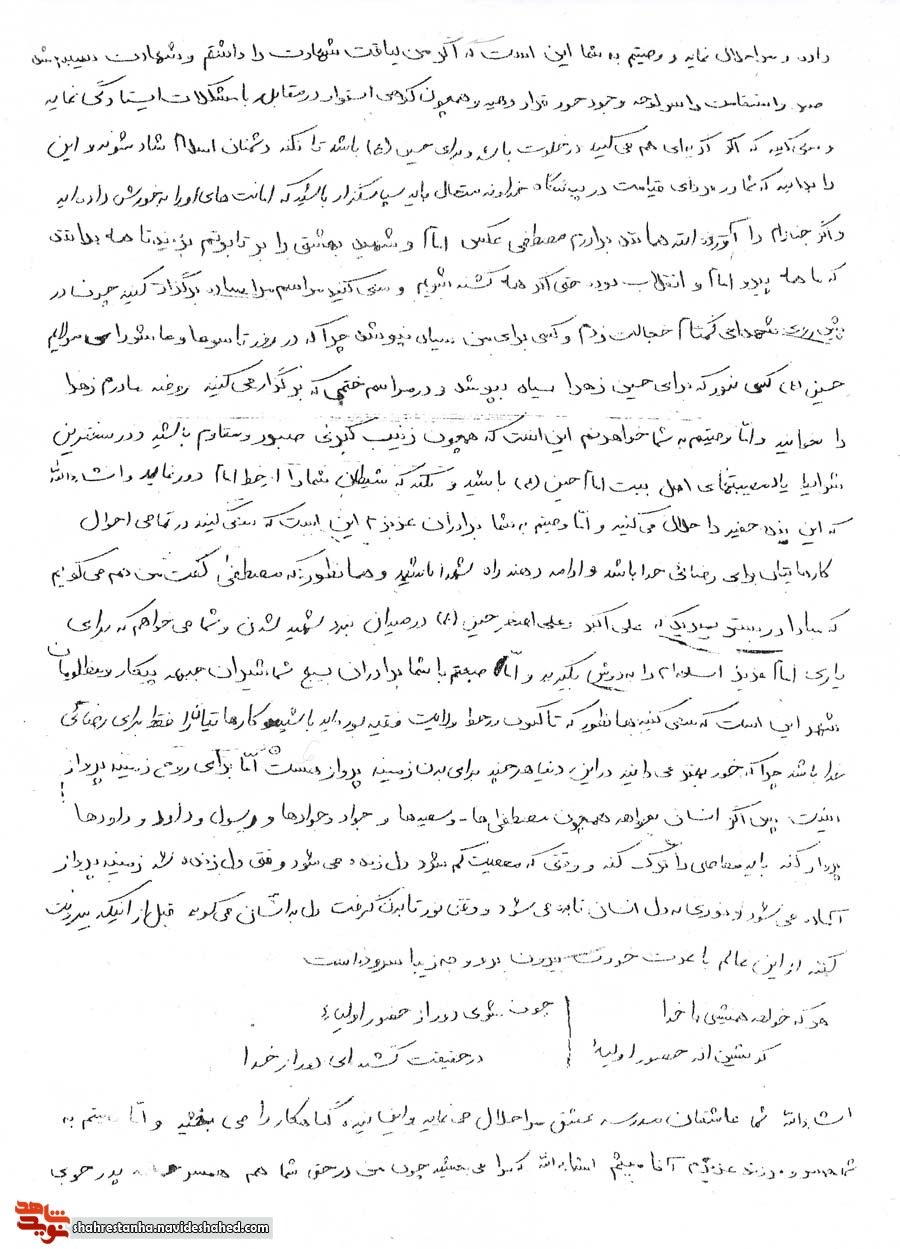 دارد و مرا حلال نماید و وصیتم به شما این است که اگر من لیاقت شهادت را داشتم و شهادت نصیبم شد
صبر و استقامت را سرلوحه وجود خود قرار دهید و همچون کوهی استوار در مقابل با مشکلات ایستادگی نماید
و سعی کنید که اگر گریه‌ای هم می‌کنید در خلوت باشد و برای حسین (ع) باشد تا نکند دشمنان اسلام شاد شوند و این
را بدانید که شما در فردای قیامت در پیشگاه خداوند متعال باید سپاسگزار باشید که امانت های او را به خودش داده‌اید
و اگر جنازه‌ام را آوردند مانند برادرم مصطفی عکس امام و شهید بهشتی را بر تابوتم بزنید تا همه بدانند
که ما همه پیرو امام و انقلاب بوده حتی اگر همه کشته شویم و سعی کنید مراسم مرا ساده برگذار کنید چون در
پیش روی شهدای گمنام خجالت زدم و کسی برای من سیاه نپوشد چرا که در روز تاسوعا و عاشورای مولایم
حسین (ع) کسی نبود که برای حسین زهرا سیاه بپوشد و در مراسم ختمی که برگذار می‌کنید روضه مادرم زهرا
را بخوانید و اما وصیتم به شما خواهرانم این است که همچون زینب کبری صبور و مقاوم باشید و در سخترین
شرایط یاد مصیبتهای اهل بیت امام حسین (ع) باشید و نکند که شیطان شما را از خط امام دور نماید و انشاءالله
که این بنده حقیر را حلال می‌کنید و اما وصیتم به شما برادران عزیزم این است که سعی کنید در تمامی احوال
کارهایتان برای رضای خدا باشد و ادامه دهنده راه شهدا باشید و همانطور که مصطفی گفت من هم می‌گویم
که مبادا در بستر بمیرید که علی اکبر و علی اصغر حسین (ع) در میدان نبرد شهید شدن و شما می‌خواهم که برای
یاری امام عزیز اسلحه‌ام را به دوش بگیرید و اما صحبتم با شما برادران بسیج شما شیران جبهه پیکار و مظلومان
شهر این است که سعی کنید همانطور که تا کنون در خط ولایت فقیه بوده‌اید باشید و کارهایتان را فقط برای رضای
خدا باشد چرا که خود بهتر می‌دانید در این دنیا هر چند برای بدن زمینه پرواز هست اما برای روح زمینه پرواز
نیست پس اگر انسان بخواهد همچون مصطفی‌ها - و سعیدها و جواد و جوادها و رسول و داود و داودها
پرواز کند باید معاصی را ترک کند و وقتی که معصیت کم شود دل زنده می‌شود وقتی دل زنده شد زمینه پرواز
آماده می‌شود و نوری به دل انسان تابیده می‌شود و وقتی نور تابیدن گرفت دل به انسان می‌گوید قبل از آنکه بیرونت
کنند از این عالم با عزت خودت بیرون برو و چه زیبا سروده است
هر که خواهد همنشینی با خدا | چون شوی دور از حضور اولیاء
گو نشین اندر حضور اولیاء | در حقیقت گشته‌ای دور از خدا
انشاءالله شما عاشقان مدرسه عشق مرا حلال می‌نماید و این بنده گناهکار را می بخشید و اما وصیتم به
شما همسر و فرزند عزیزم آقا میثم انشاءالله که مرا می‌بخشید چون من در حق شما هم همسر و هم پدر خوبی
نوید شاهد
shahrestanha.navideshahed.com